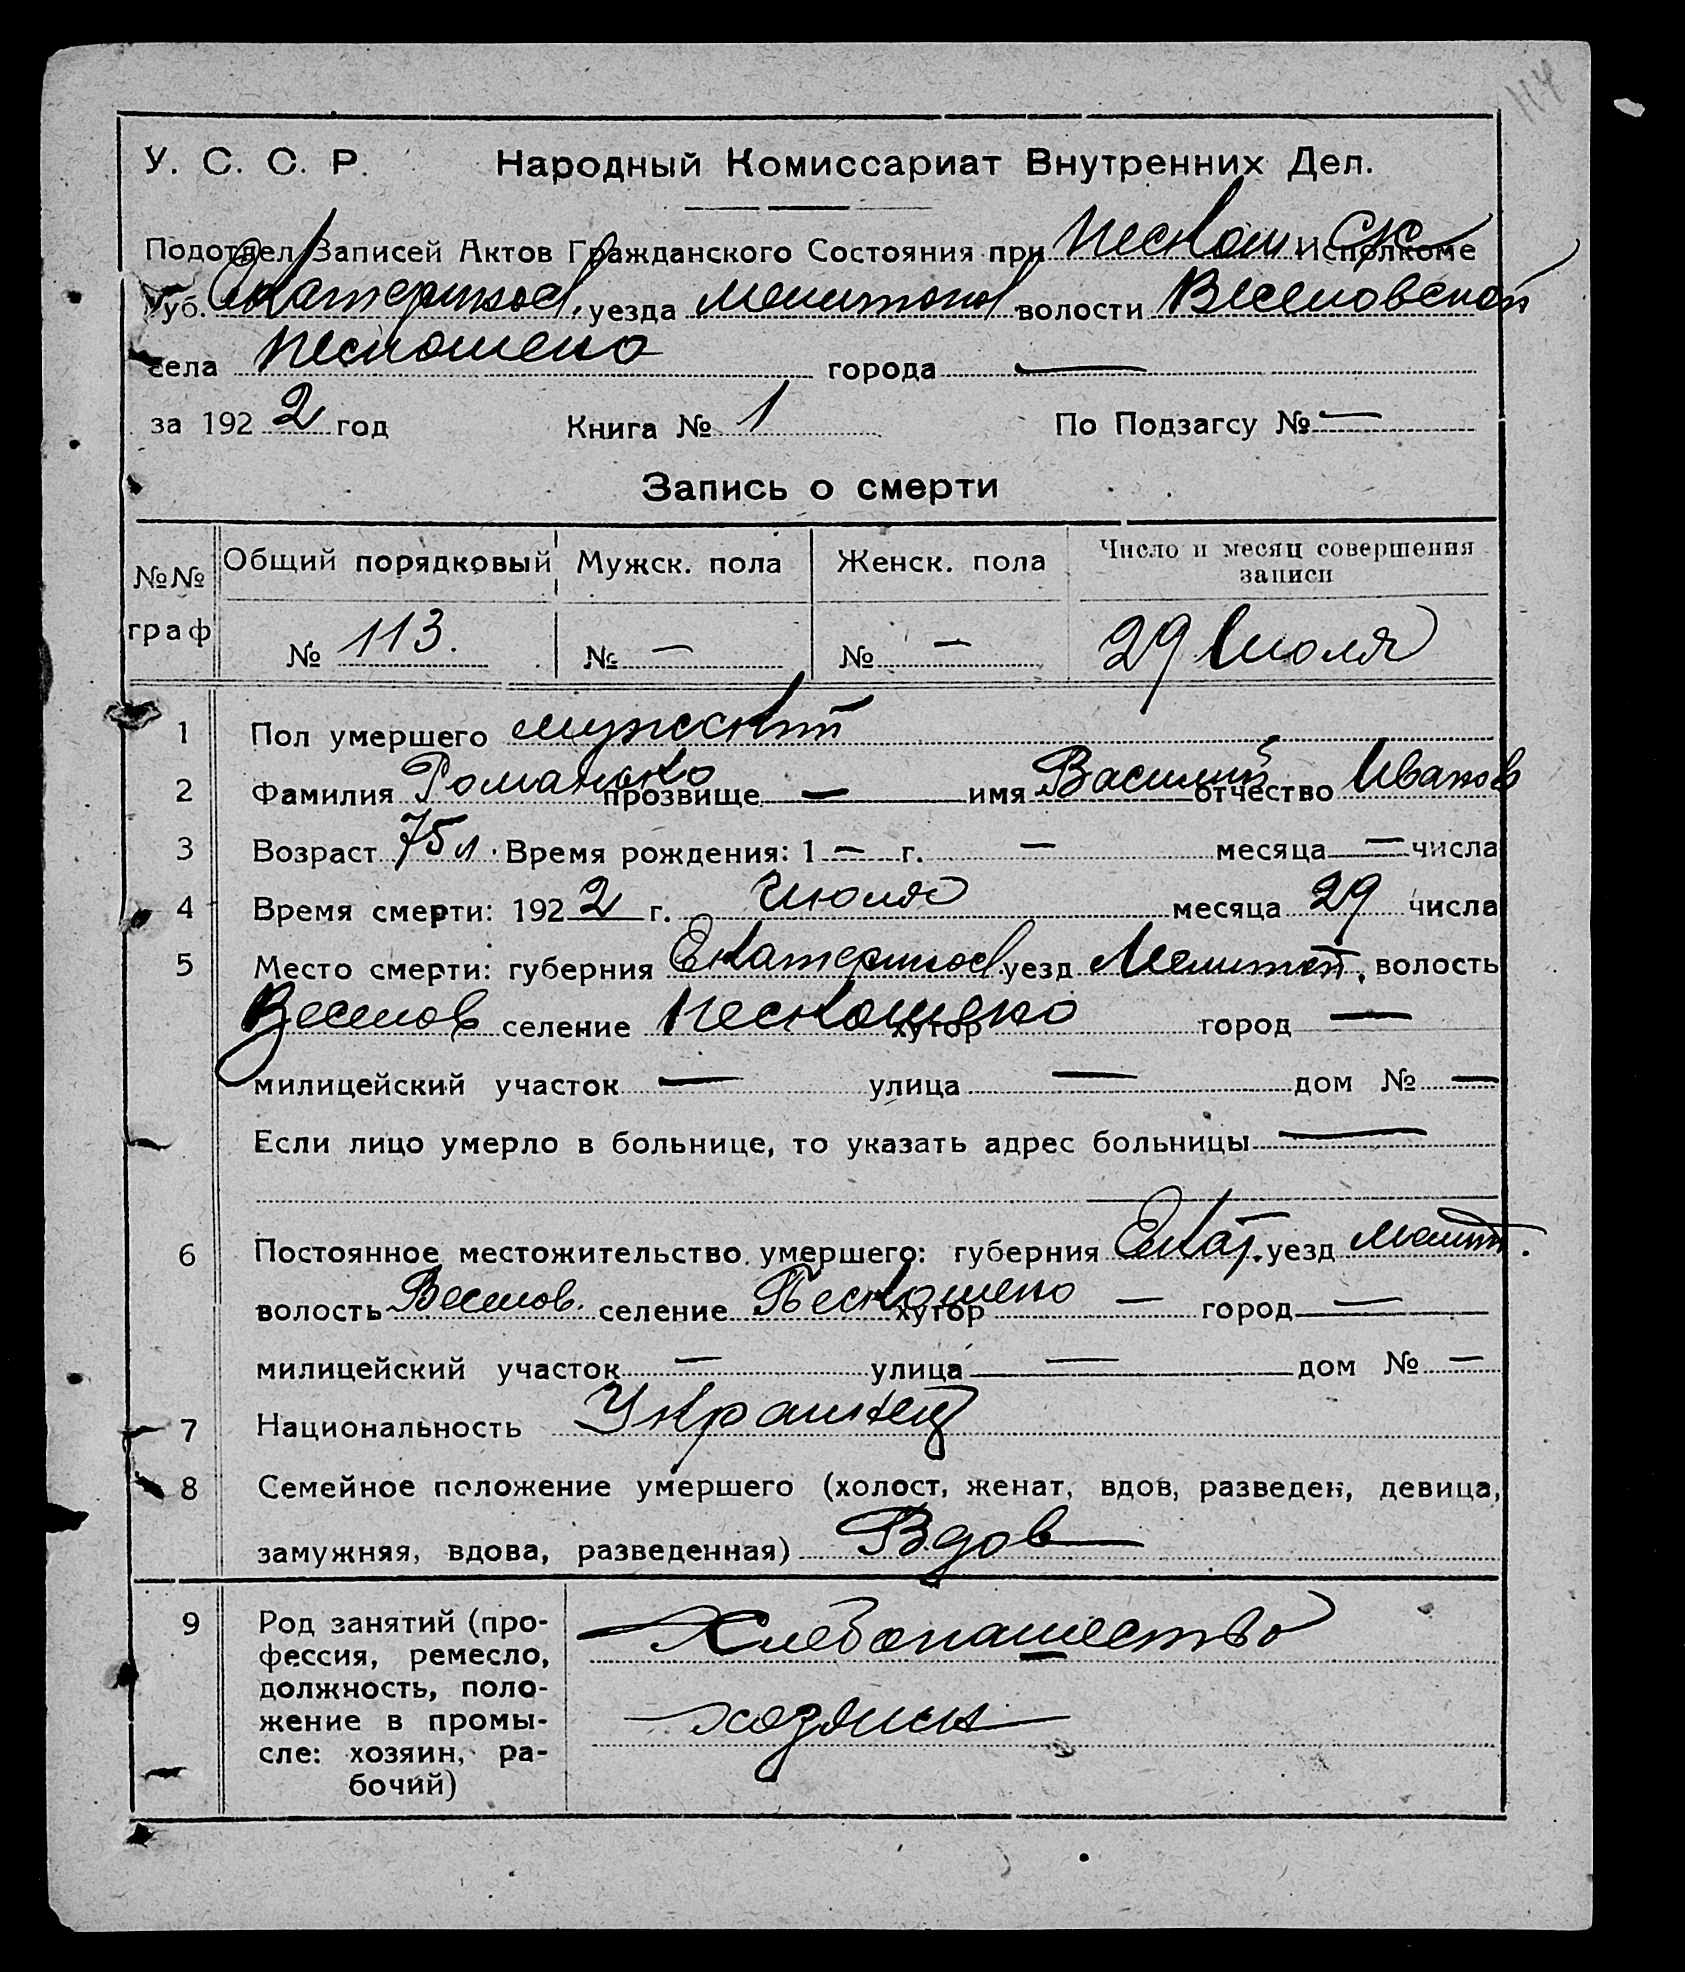 114
У. С. С. Р. Народный Комиссариат Внутренних Дел.
Подотдел Записей Актов Гражданского Состояния при Пескош Исполкоме
Губ. Екатеринос. уезда Мелитопол волости Веселовской
села Пескошено города —
за 1922 год Книга № 1 По Подзагсу № —
Запись о смерти
№№ граф Общий порядковый Мужск. пола Женск. пола Число и месяц совершения записи
№ 113. № — № — 29 Июля
1 Пол умершего мужский
2 Фамилия Романько прозвище — имя Василий отчество Иванов
3 Возраст 75 л. Время рождения: 1 — г. — месяца — числа
4 Время смерти: 1922 г. Июля месяца 29 числа
5 Место смерти: губерния Екатеринос. уезд Мелитоп. волость
Веселов селение Пескошено хутор город —
милицейский участок — улица — дом № —
Если лицо умерло в больнице, то указать адрес больницы —
6 Постоянное местожительство умершего: губерния Екат. уезд Мелит.
волость Веселов. селение Пескошено хутор — город —
милицейский участок — улица — дом № —
7 Национальность Украинец
8 Семейное положение умершего (холост, женат, вдов, разведен, девица,
замужняя, вдова, разведенная) Вдов
9 Род занятий (про-
фессия, ремесло,
должность, поло-
жение в промы-
сле: хозяин, ра-
бочий)
Хлебопашество
хозяин